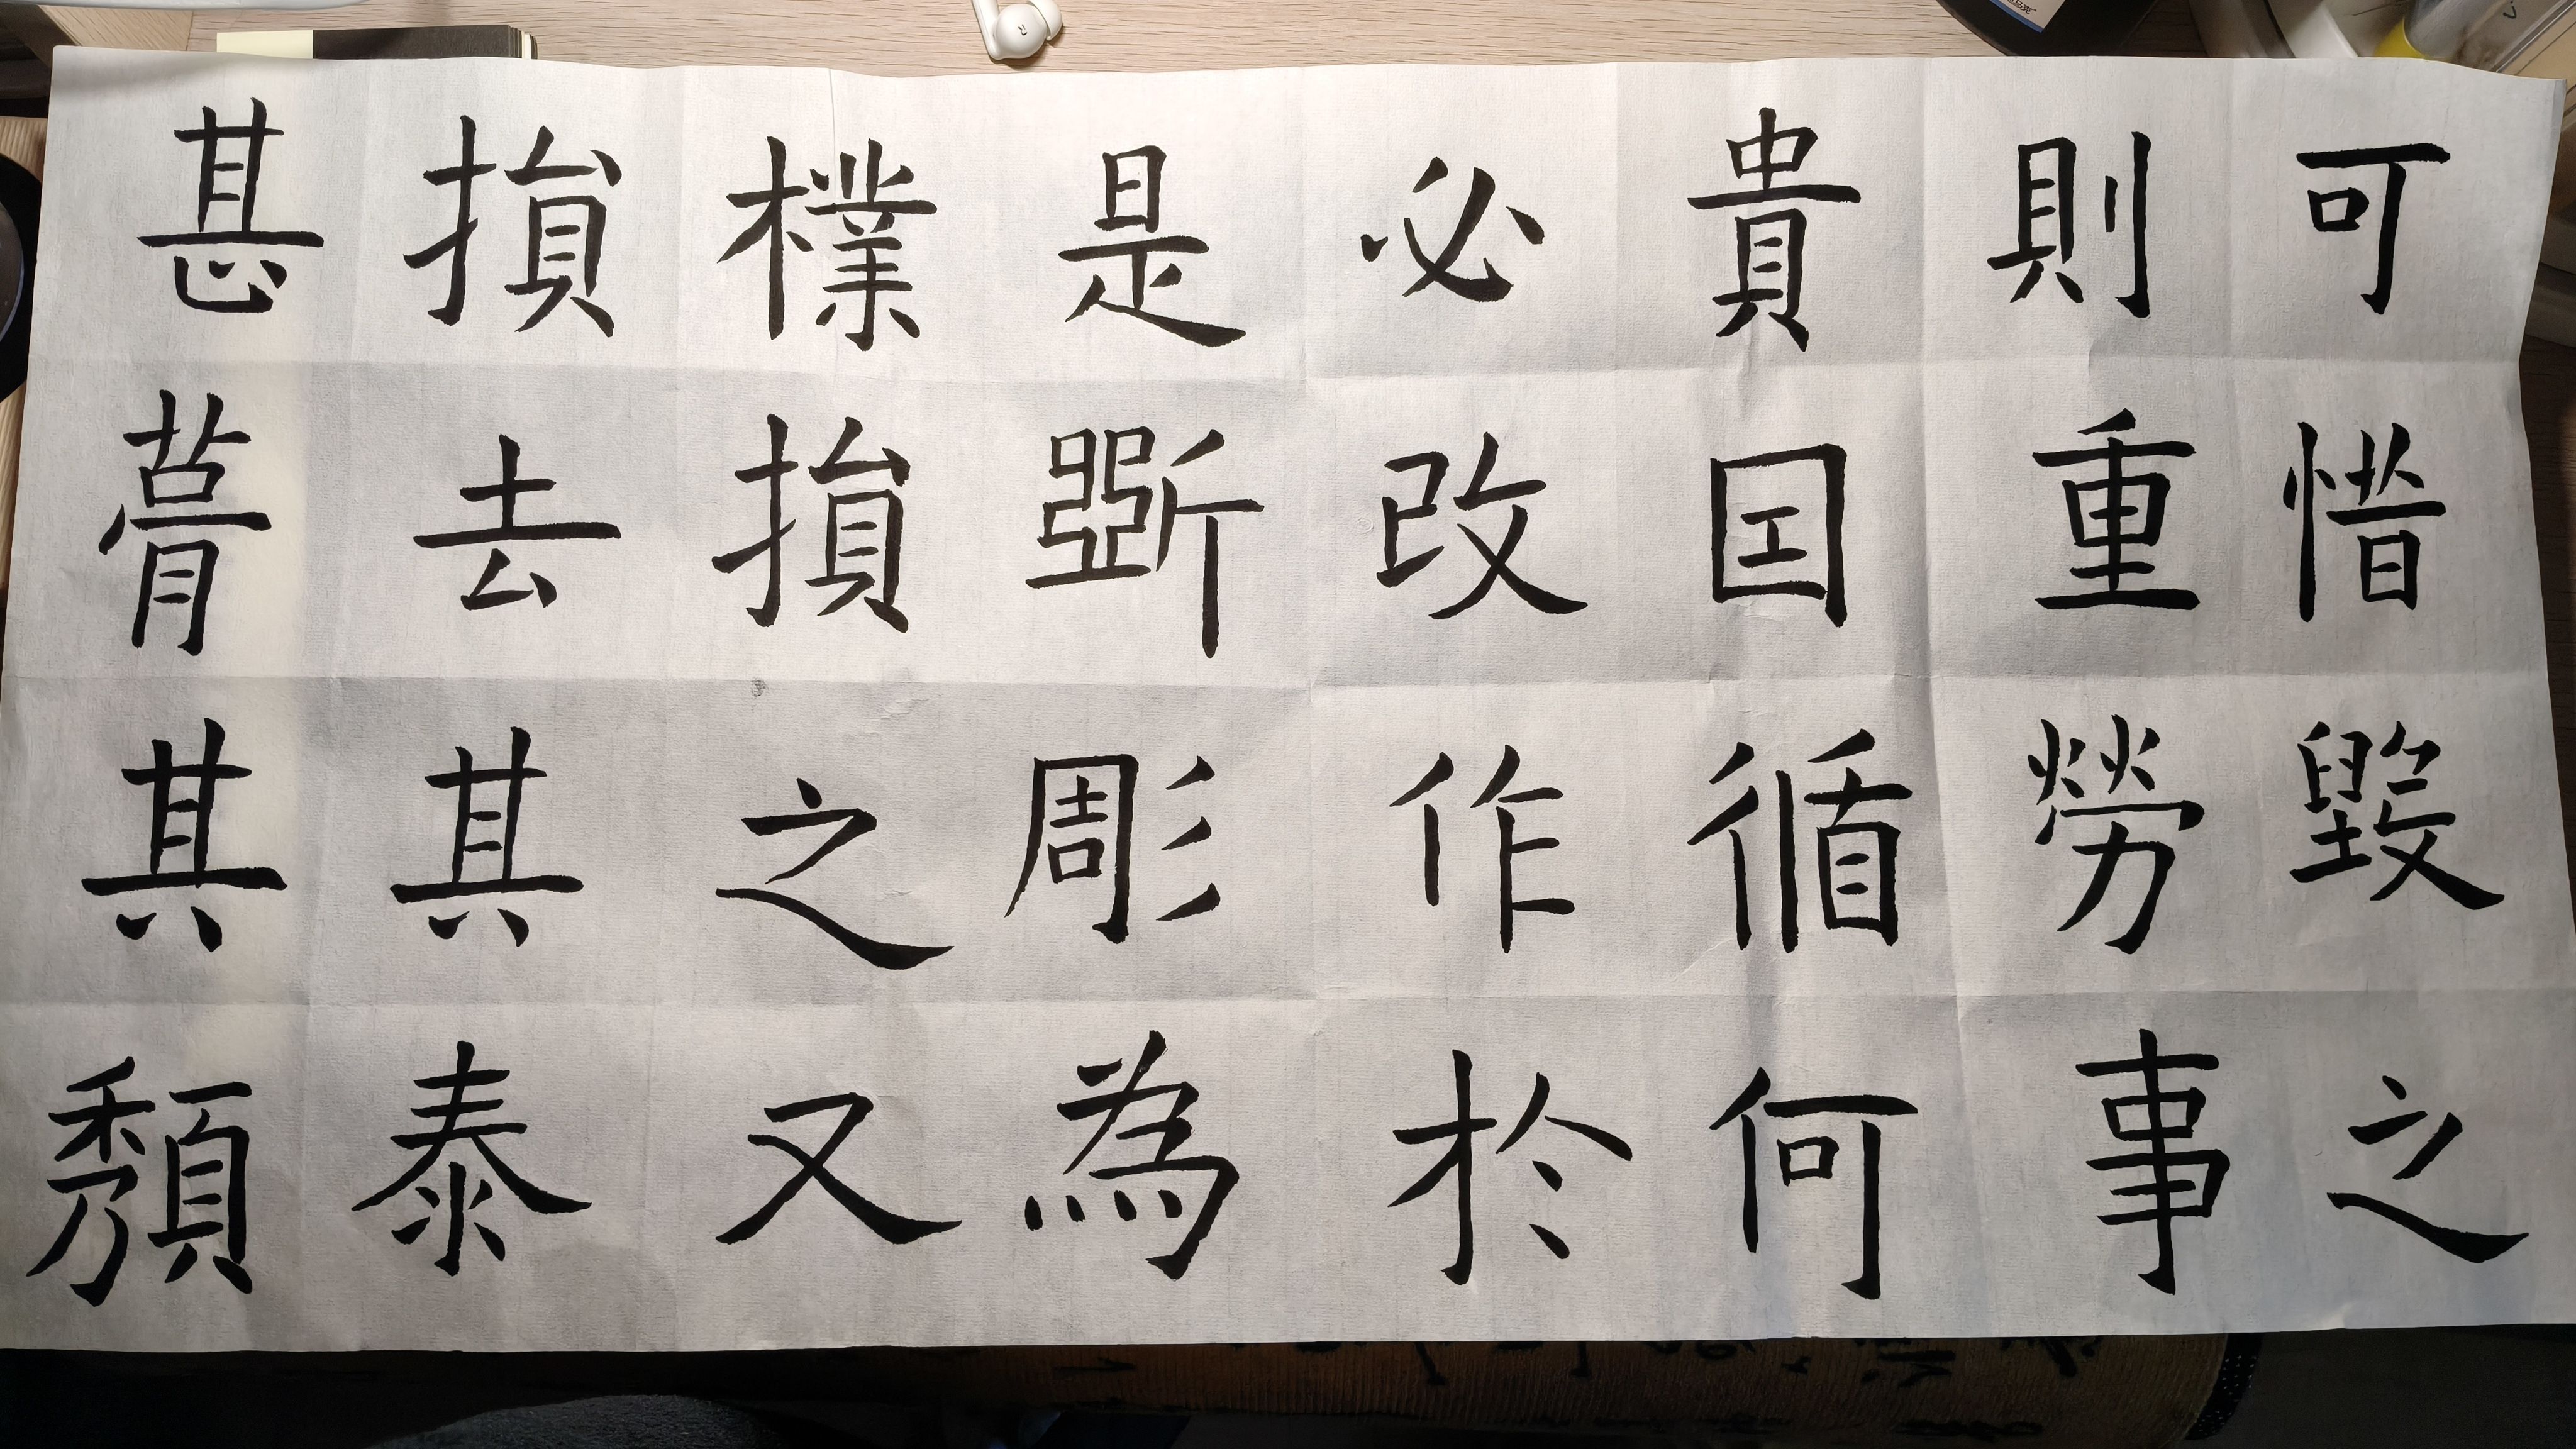 可惜毀之
則重勞事
貴囙循何
必改作於
是斲彫為
樸損之又
損去其泰
甚葺其頽